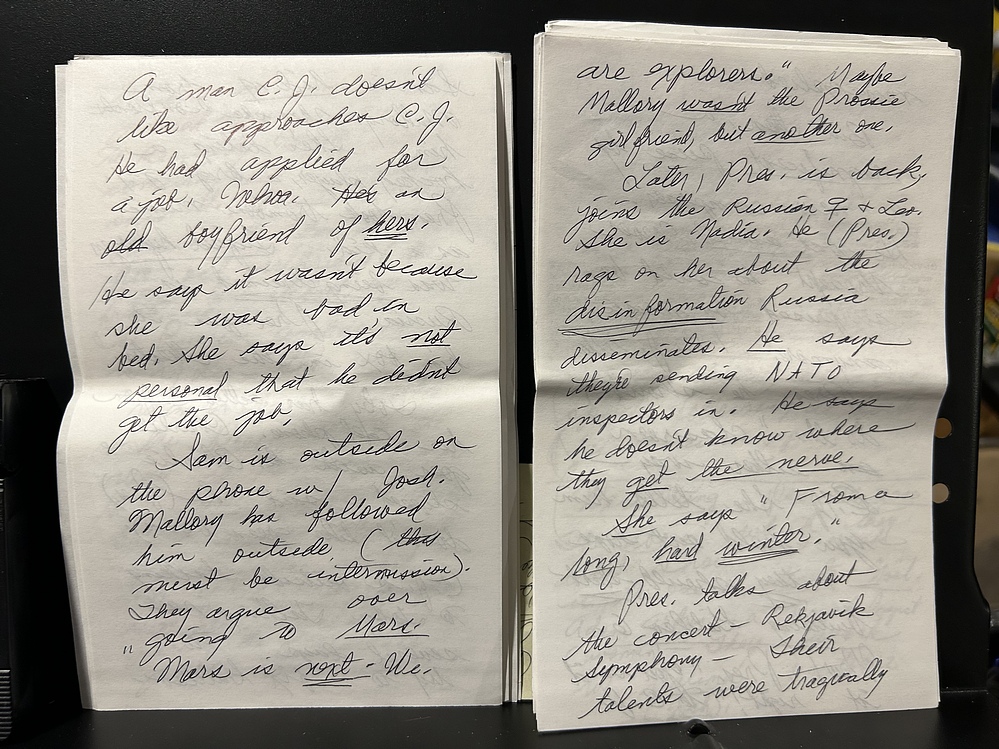 A man C.J. doesn't
like approaches C.J.
He had applied for
a job. Whoa. He's an
old boyfriend of hers.
He says it wasn't because
she was bad in
bed. She says it's not
personal that he didn't
get the job.
Sam is outside on
the phone w/ Josh.
Mallory has followed
him outside. (this
must be intermission).
They argue over
"going to Mars.
Mars is next - We.
are explorers." Maybe
Mallory wasn't the Prossie
girlfriend, but another one.
Later, Pres. is back,
joins the Russian ♀ + Leo.
She is Nadia. He (Pres.)
rags on her about the
disinformation Russia
disseminates. He says
they're sending NATO
inspectors in. He says
he doesn't know where
they get the nerve.
She says "From a
long, hard winter."
Pres. talks about
the concert - Rekjavik
Symphony - Their
talents were tragically